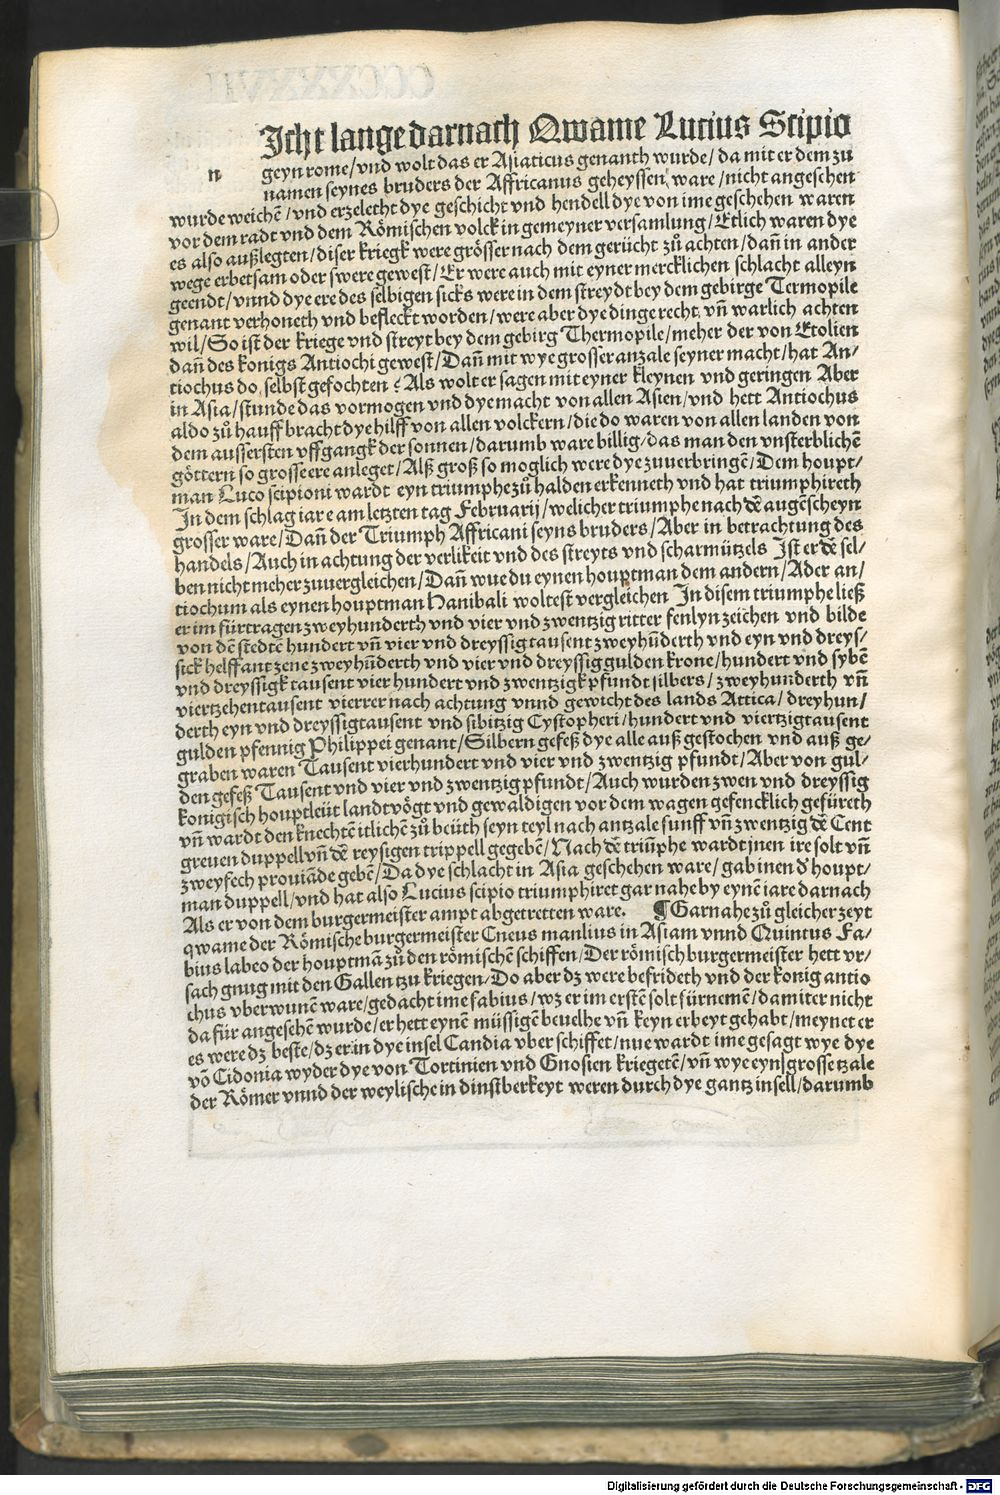 Icht lange darnach Qwame Lucius Scipio
n geyn rome/vnd wolt das er Asiaticus genanth wurde/da mit er dem zu
namen seynes bruders der Affricanus geheyssen ware/nicht angesehen
wurde weichē/vnd erzelecht dye geschicht vnd hendell dye von ime geschehen waren
vor dem radt vnd dem Römischen volck in gemeyner versamlung/Etlich waren dye
es also außlegten/diser kriegk were grösser nach dem gerücht zů achten/dañ in ander
wege erbetsam oder swere gewest/Er were auch mit eyner mercklichen schlacht alleyn
geendt/vnnd dye ere des selbigen sicks were in dem streydt bey dem gebirge Termopile
genant verhoneth vnd befleckt worden/were aber dye dinge recht vñ warlich achten
wil/So ist der kriege vnd streyt bey dem gebirg Thermopile/meher der von Etolien
dañ des konigs Antiochi gewest/Dañ mit wye grosser anzale seyner macht/hat An/
tiochus do selbst gefochten? Als wolt er sagen mit eyner kleynen vnd geringen Aber
in Asia/stunde das vormogen vnd dye macht von allen Asien/vnd hett Antiochus
aldo zů hauff bracht dye hilff von allen volckern/die do waren von allen landen von
dem aussersten vffgangk der sonnen/darumb ware billig/das man den vnsterblichē
göttern so grosse ere anleget/Alß groß so moglich were dye zuuerbringē/Dem houpt/
man Luco scipioni wardt eyn triumphe zů halden erkenneth vnd hat triumphireth
In dem schlag iare am letzten tag Februarij/welicher triumphe nach dē augēscheyn
grosser ware/Dañ der Triumph Affricani seyns bruders/Aber in betrachtung des
handels/Auch in achtung der verlikeit vnd des streyts vnd scharmützels Ist er dē sel/
ben nicht meher zuuergleichen/Dañ wue du eynen houptman dem andern/Ader an/
tiochum als eynen houptman Hanibali woltest vergleichen In disem triumphe ließ
er im fürtragen zweyhunderth vnd vier vnd zwentzig ritter fenlyn zeichen vnd bilde
von dē stedtē hundert vñ vier vnd dreyssig tausent zweyhūderth vnd eyn vnd dreys/
sick helffant zene zweyhūderth vnd vier vnd dreyssig gulden krone/hundert vnd sybē
vnd dreyssigk tausent vier hundert vnd zwentzigk pfundt silbers/zweyhunderth vñ
viertzehentausent vierrer nach achtung vnnd gewicht des lands Attica/dreyhun/
derth eyn vnd dreyssigtausent vnd sibitzig Cystopheri/hundert vnd viertzigtausent
gulden pfennig Philippei genant/Silbern gefeß dye alle auß gestochen vnd auß ge/
graben waren Tausent vierhundert vnd vier vnd zwentzig pfundt/Aber von gul/
den gefeß Tausent vnd vier vnd zwentzig pfundt/Auch wurden zwen vnd dreyssig
konigisch houptleüt landtvögt vnd gewaldigen vor dem wagen gefencklich gefüreth
vñ wardt den knechtē itlichē zů beüth seyn teyl nach antzale funff vñ zwentzig dē Cent
greuen duppell vñ dē reysigen trippell gegebē/Nach dē triūphe wardt jnen ire solt vñ
zweyfech prouiāde gebē/Da dye schlacht in Asia geschehen ware/gab inen d' houpt/
man duppell/vnd hat also Lucius scipio triumphiret gar nahe by eynē iare darnach
Als er von dem burgermeister ampt abgetretten ware. ¶ Gar nahe zů gleicher zeyt
qwame der Römische burgermeister Cneus manlius in Asiam vnnd Quintus Fa/
bius labeo der houptmā zů den römischē schiffen/Der römisch burgermeister hett vr/
sach gnug mit den Gallen tzu kriegen/Do aber dz were befrideth vnd der konig antio
chus vberwunē ware/gedacht ime fabius/wz er im erstē solt fürnemē/damit er nicht
da für angesehē wurde/er hett eynē müssigē beuelhe vñ keyn erbeyt gehabt/meynet er
es were dz beste/dz er in dye insel Candia vber schiffet/nue wardt ime gesagt wye dye
vō Cidonia wyder dye von Tortinien vnd Gnosien kriegetē/vñ wye eyn grosse tzale
der Römer vnnd der weylische in dinstberkeyt weren durch dye gantz insell/darumb
Digitalisierung gefördert durch die Deutsche Forschungsgemeinschaft - DFG